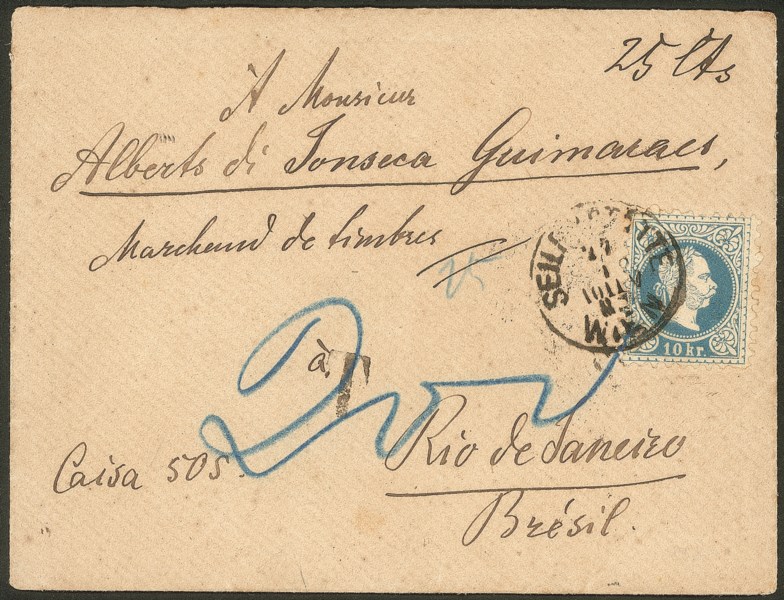 25 Cts
À Monsieur
Alberto di Fonseca Guimaraes,
Marchand de timbres
25
à
T
Rio de Janeiro
Caisa 505
Brésil.
SEILERSTÄTTE
WIEN
10 kr.